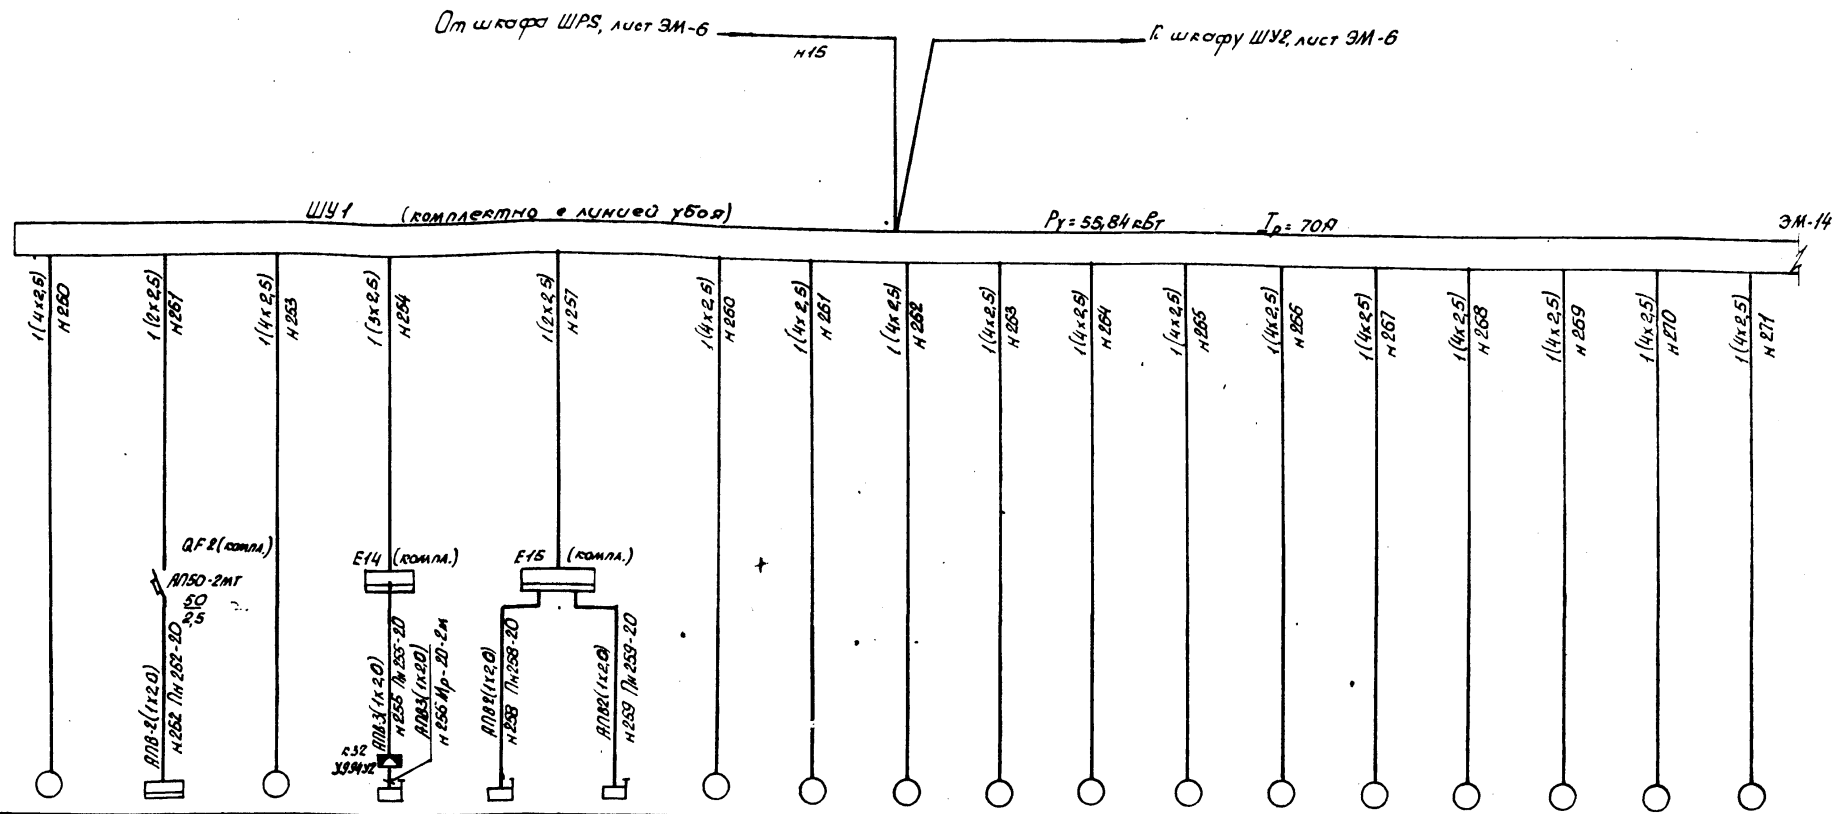 От шкафа ШР5, лист ЭМ-6
К шкафу ШУ2, лист ЭМ-6
н15
ШУ1 (комплектно с линией убоя)
Ру=55,84 кВт
Iр= 70А
ЭМ-14
1(4х2,5)
н250
1(2х2,5)
н251
1(4х2,5)
н253
1(3х2,5)
н254
1(2х2,5)
н257
1(4х2,5)
н260
1(4х2,5)
н261
1(4х2,5)
н262
1(4х2,5)
н263
1(4х2,5)
н264
1(4х2,5)
н265
1(4х2,5)
н266
1(4х2,5)
н267
1(4х2,5)
н268
1(4х2,5)
н269
1(4х2,5)
н270
1(4х2,5)
н271
QF2 (компл.)
АП50-2МТ
50
2,5
Е14 (компл.)
Е15 (компл.)
АПВ-2(1х2,0)
н252 Пн252-20
АПВ-3(1х2,0)
н255 Пн255-20
АПВ3(1х2,0)
н256 Мр-20-2м
АПВ2(1х2,0)
н258 Пн258-20
АПВ2(1х2,0)
н259 Пн259-20
к32
У994У2